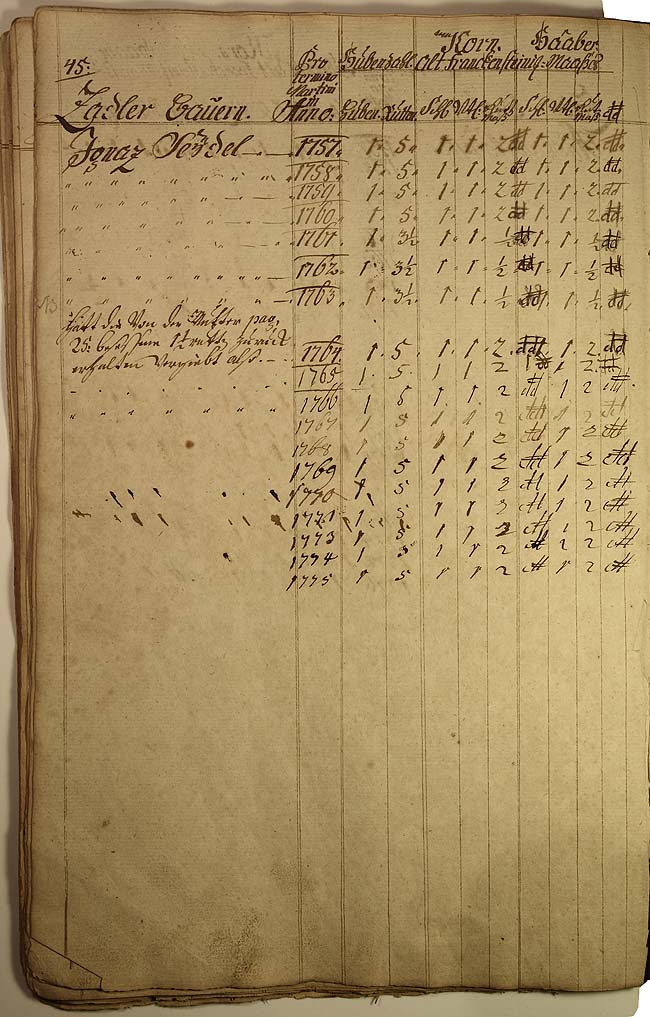 45.
Pro termino Martini in Anno:
Hubenzahl.
Korn.
Haaber
Alt Franckensteinig-Maaßes
Zadler Bauern.
Huben. Rutten. Schfl. Mtz. Schfl. Mtz.
Ignaz Seydel 1757. 1. 5. 1. 1. 2 dd 1. 1. 2. dd.
" " " " " 1758. 1. 5. 1. 1. 2 dd 1. 1. 2. dd.
" " " " " 1759. 1. 5. 1. 1. 2 dd 1. 1. 2. dd
" " " " " 1760. 1. 5. 1. 1. 2 dd 1. 1. 2. dd.
" " " " " 1761. 1. 3½ 1. 1. ½ dd 1. 1. ½ dd
" " " " " 1762. 1. 3½ 1. 1. ½ dd 1. 1. ½ dd
NB " " " " " 1763. 1. 3½ 1. 1. ½ dd 1. 1. ½ dd.
hatt die Von der Mutter pag.
25. zurück
erhalten als. 1764. 1. 5 1. 1. 2. dd 1. 2. dd
" " " " " 1765 1. 5. 1 1 2 1 2. dd.
" " " " " 1766 1 5 1. 1. 2 dd 1 2 dd.
1767 1 5 1 1 2 dd 1 2 dd
1768 1 5 1 1 2 dd 1 2 dd
1769 1 5 1 1 2 dd 1 2 dd
1770 1. 5 1 1 3 dd 1 2 dd
1771 1 5 1 1 3 dd 1 2 dd
1773 1 5 1 1 3 dd 1 2 dd
1774 1 3 1 1 2 dd 2 2 dd
1775 1 5 1 1 2 dd 1 2 dd